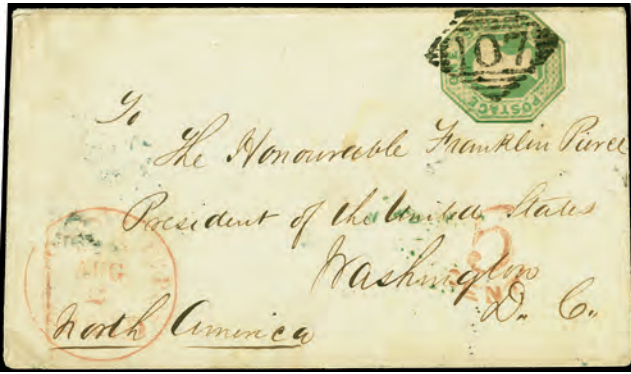 107
POSTAGE
To
The Honourable Franklin Pierce
President of the United States
5
Washington
D. C.
AUG
North America